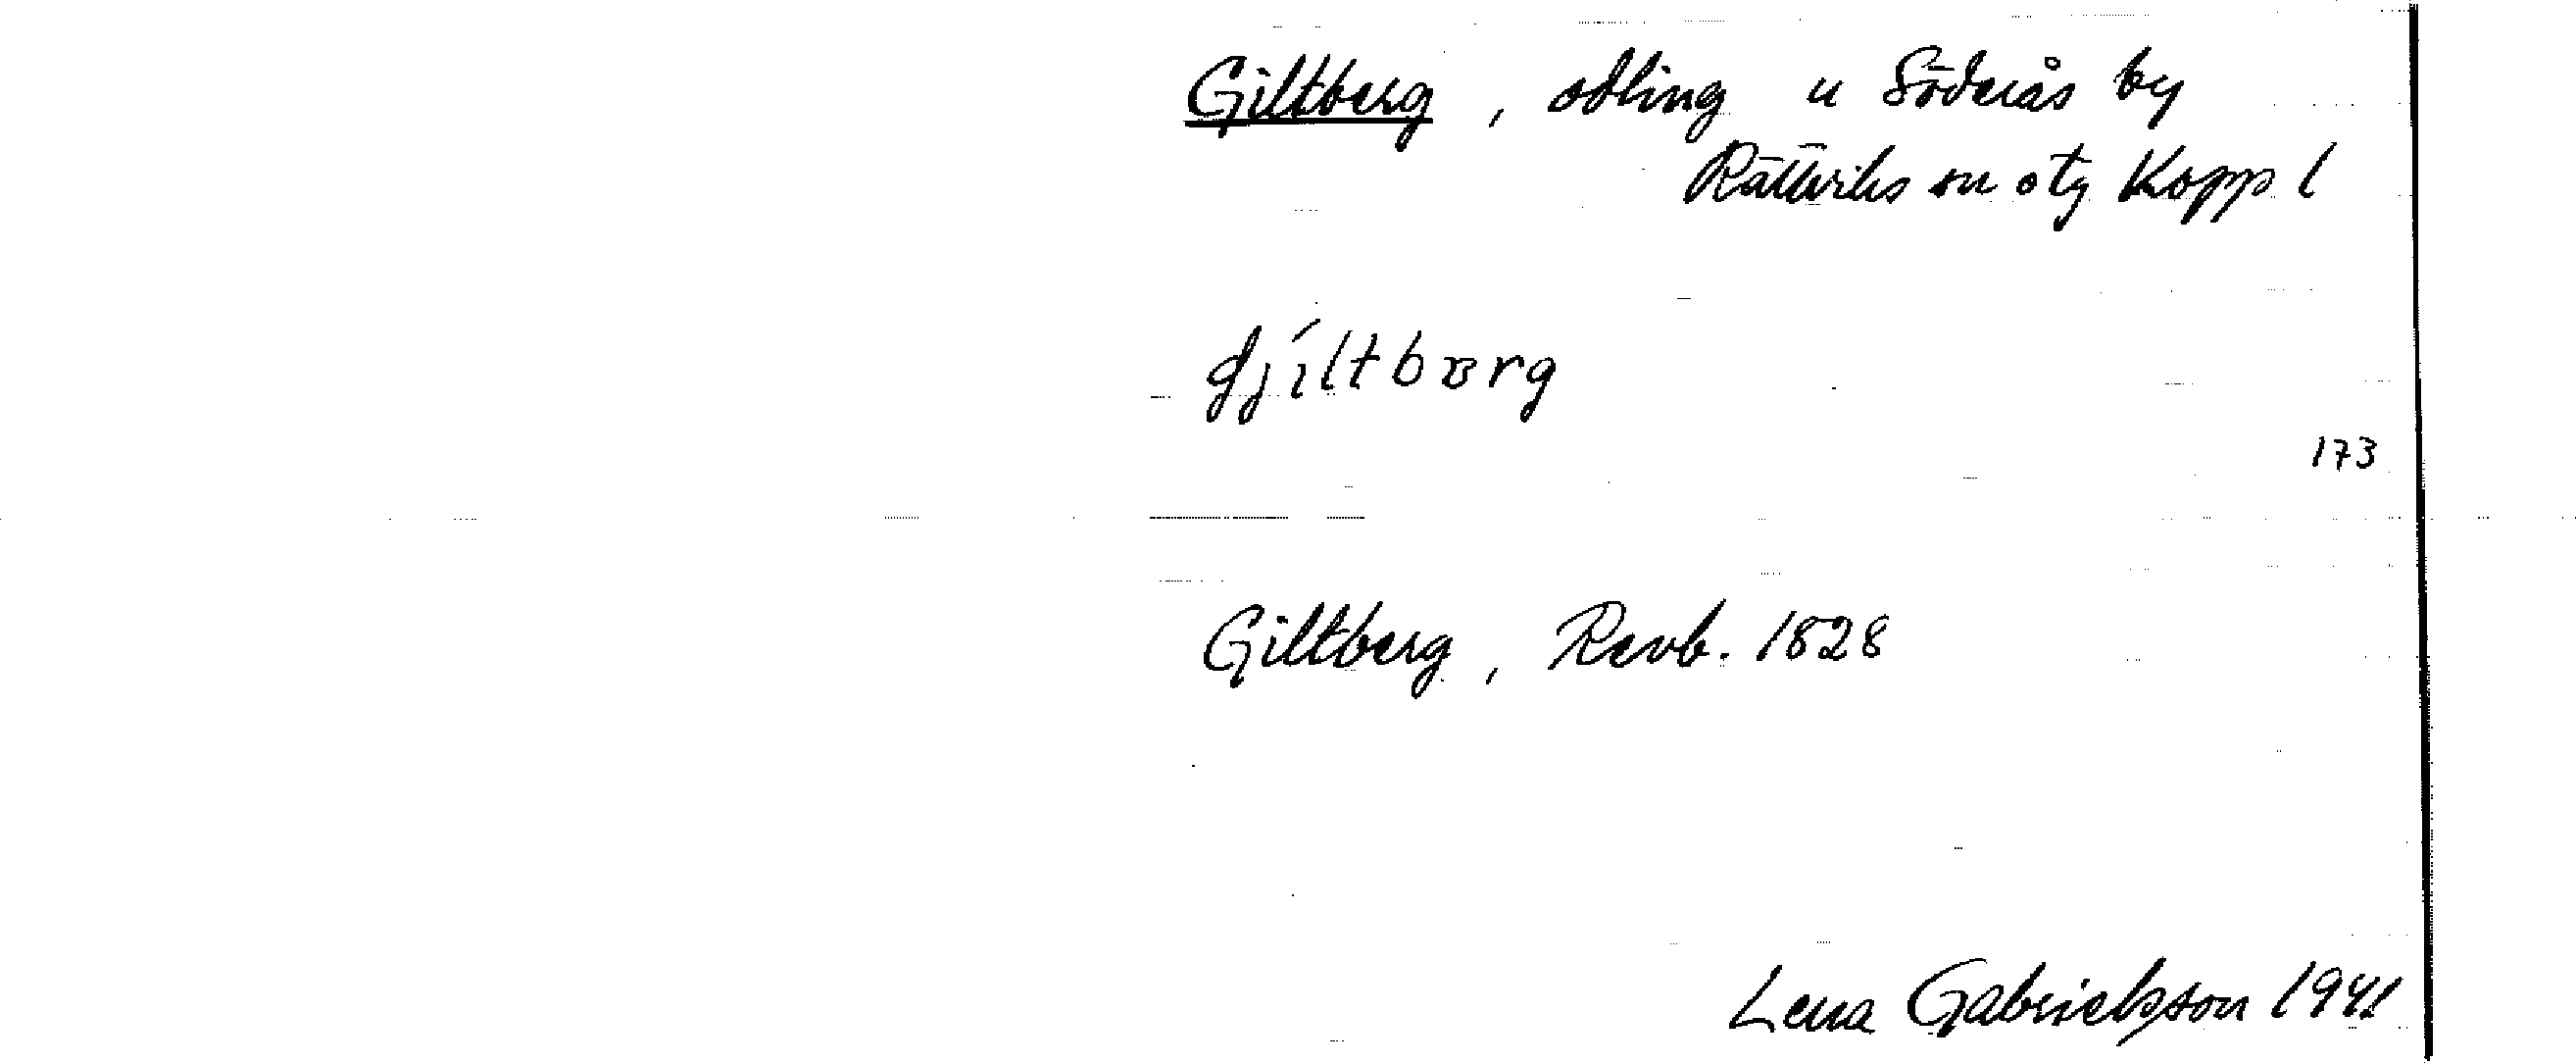 Giltberg, odling u Söderås by
Rättviks sn otg Kopp l
173
Giltberg, Revb. 1828
Lena Gabrielsson 1941